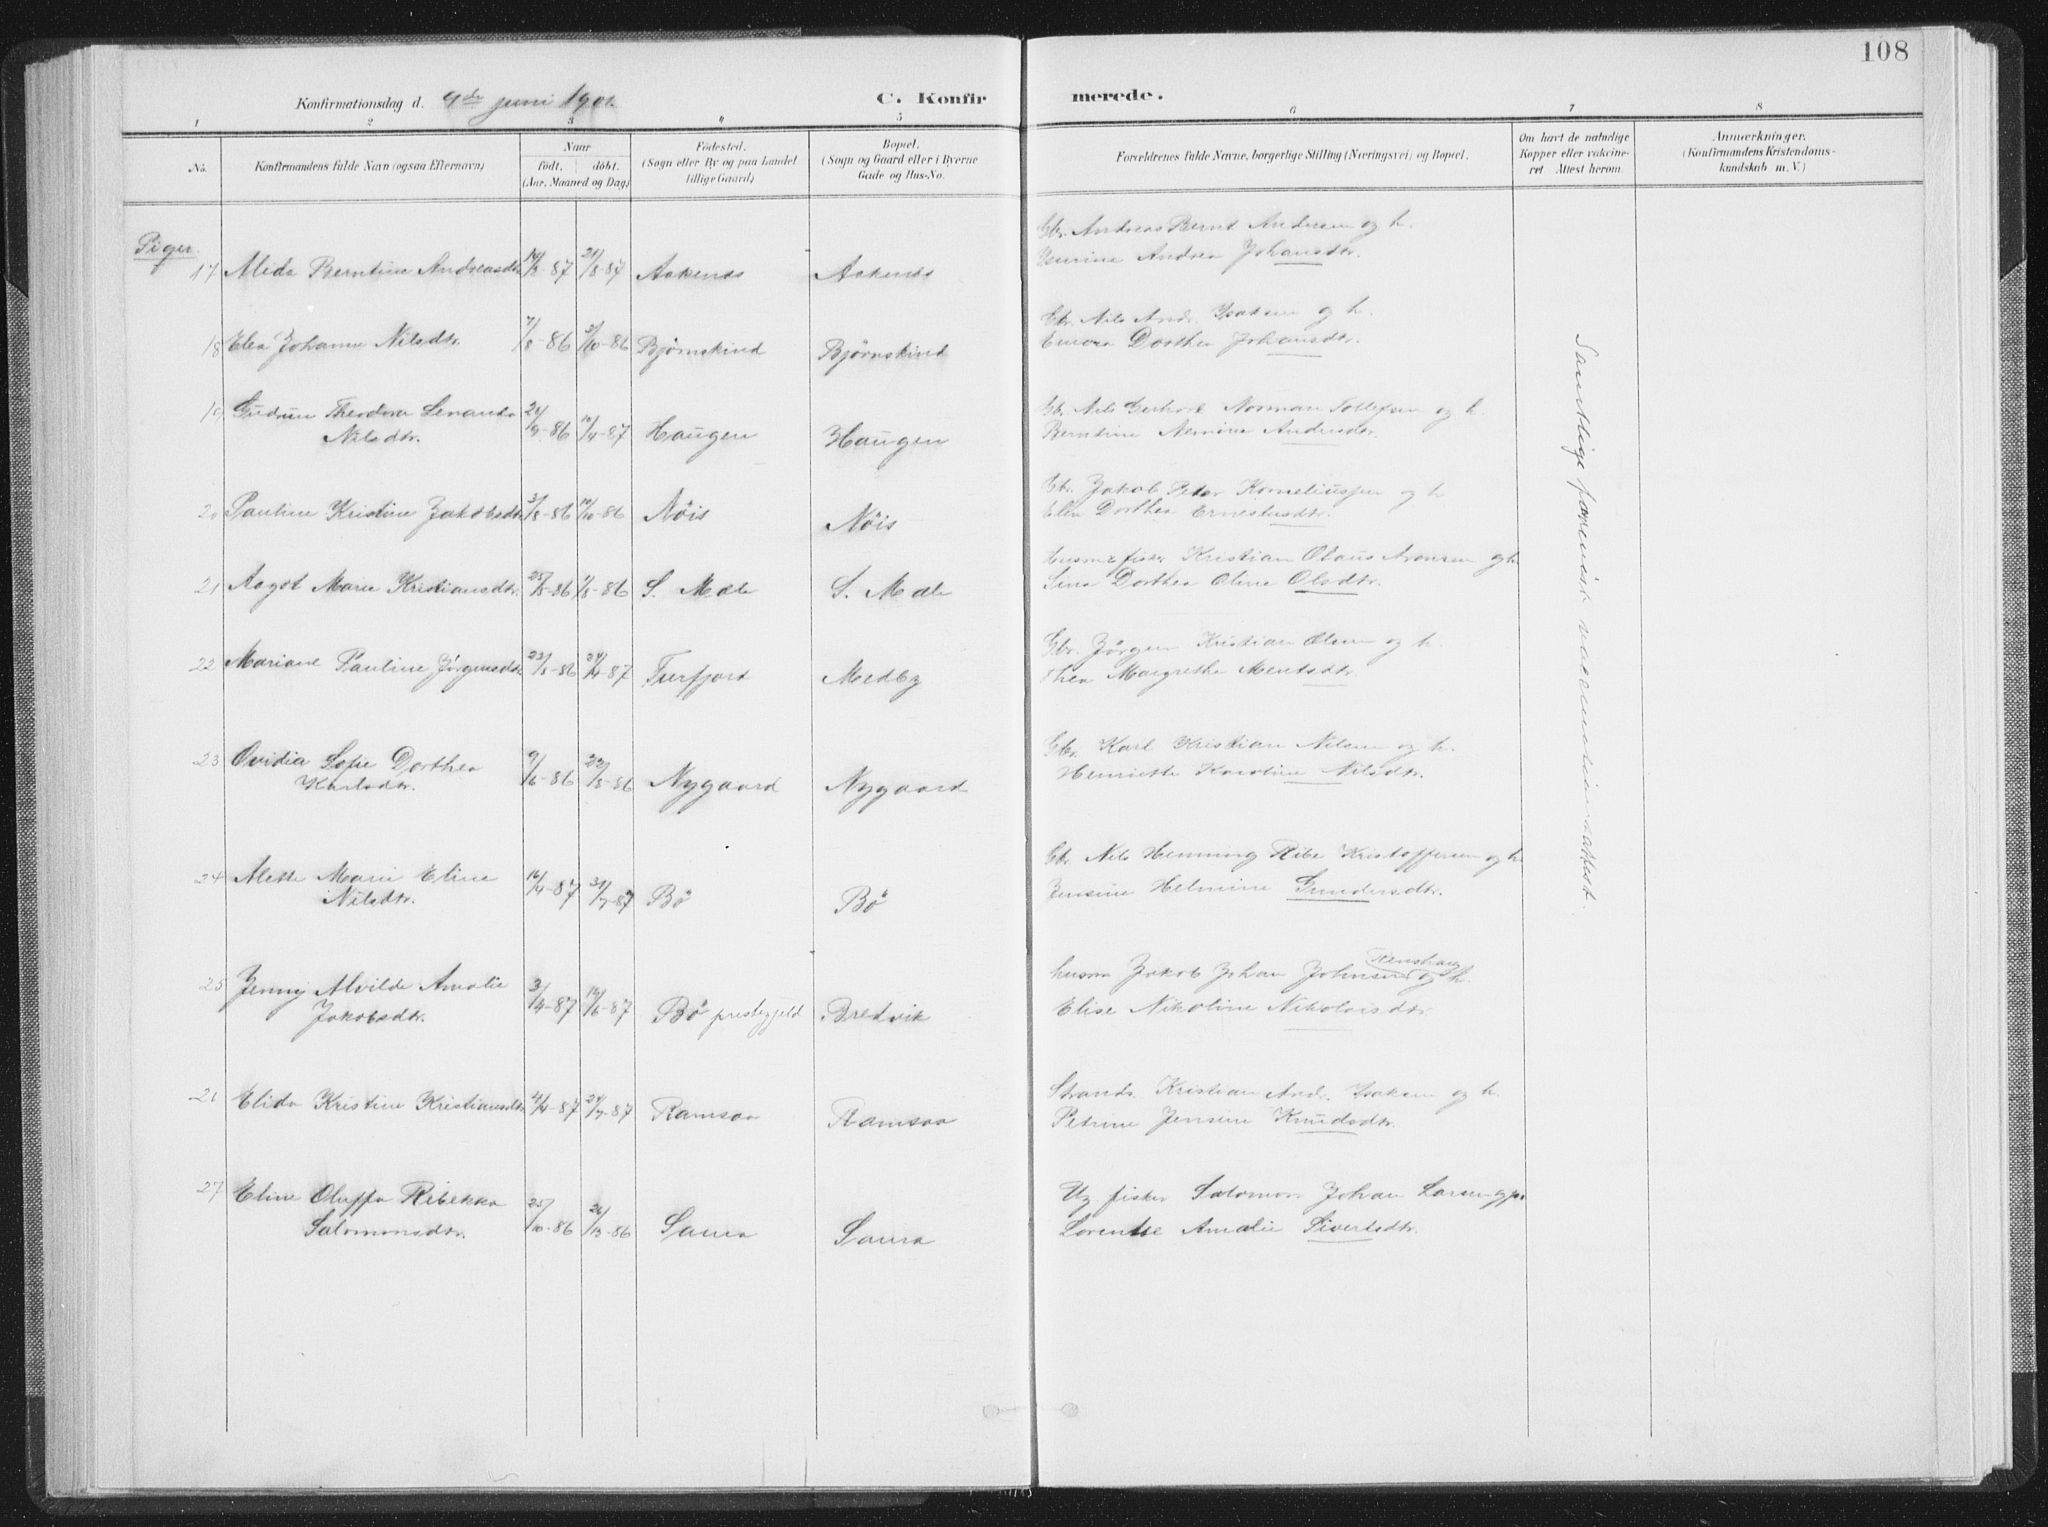 108
Konfirmationsdag d. 9de juni 1901
C. Konfirmerede.
1 2 3 4 5 6 7 8
No.
Konfirmandens fulde Navn (ogsaa Efternavn)
Naar
födt. döbt.
(Aar, Maaned og Dag)
Födested.
(Sogn eller By og paa Landet
tillige Gaard)
Bopæl.
(Sogn og Gaard eller i Byerne
Gade og Hus-No.
Forældrenes fulde Navne, borgerlige Stilling (Næringsvei) og Bopæl.
Om havt de naturlige
Kopper eller vakcine-
ret Attest herom.
Anmærkninger.
(Konfirmandens Kristendoms-
kundskab m. V.)
Piger.
Gbr. Andreas Bernt Andersen og h.
17 Alida Berntine Andreasdtr. 14/3-87 21/8-87 Aakenes Aakenes
Andrea Johansdtr.
Gbr. Nils Andr. Isaksen og h.
18 Elea Johanna Nilsdtr. 7/8-86 31/10-86 Bjørnskind Bjørnskind
Dorthea Johansdtr.
19 Gudrun Theodora Lenanda
Nilsdtr. 10/4-87 Haugen Haugen
Gbr. Nils Gerhard Norman Tollefsen og h.
Berntine Andersdtr.
20 Pauline Kristine Jakobsdtr. 3/8-86 10/10-86 Nöis Nöis
Gbr. Jakob Peter Korneliussen og h
Elea Dorthea Ernestusdtr.
21 Aagot Marie Kristiansdtr. S. Mæle S. Mæle
Husm & fisker Kristian Olaus Aronsen og h.
Lina Dorthea Oline Olsdtr.
22 Mariane Pauline Jörgensdtr. 23/8-86 24/4-87 Tusfjord Medby
Gbr. Jörgen Kristian Olsen og h.
Thea Margrethe Mentsdtr.
23 Ovidia Sofie Dorthea
Karlsdtr. 9/6-86 22/8-86 Nygaard Nygaard
Gbr. Karl Kristian Nilsen og h.
Henriette Karoline Nilsdtr.
24 Alette Marie Eline
Nilsdtr. 16/4-87 31/7-87 Bö Bö
Gbr Nils Henning Ribe Kristoffersen og h
Jensine Helmine Gundersdtr.
25 Jenny Alvilde Amalie
Jakobsdtr. 3/4-87 12/6-87 Bö prestegjeld Bredvik
husm Jakob Johan Johnsen og h.
Elise Nikoline Nikolaisdtr
26 Elida Kristine Kristiansdtr 4/4-87 24/7-87 Ramsaa Ramsaa
Strands. Kristian Andr. Isaksen og h.
Petrine Jensine Knudsdtr.
27 Eline Oluffa Ribekka
Salomonsdtr. 25/10-86 26/12-86 Saura Saura
Ug. fisker Salomon Johan Larsen og p.
Lorentse Amalie Sivertsdtr.
Samtlige forevist vaccinationsattest.